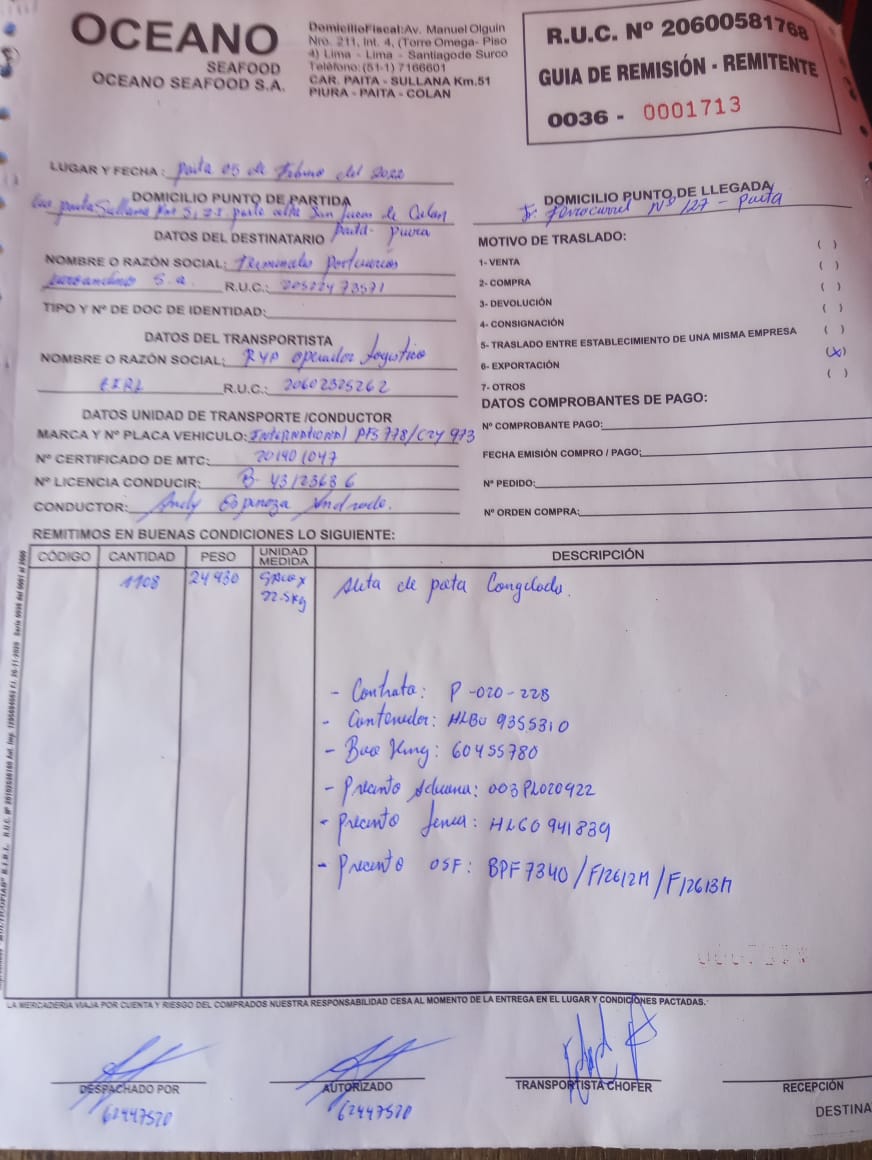 OCEANO
SEAFOOD
OCEANO SEAFOOD S.A.
DomicilioFiscal:Av. Manuel Olguin
Nro. 211, Int. 4, (Torre Omega- Piso
4) Lima - Lima - Santiagode Surco
Teléfono:(51-1) 7166601
CAR. PAITA - SULLANA Km.51
PIURA - PAITA - COLAN
R.U.C. Nº 20600581768
GUIA DE REMISIÓN - REMITENTE
0036 - 0001713
LUGAR Y FECHA : Paita 05 de Febrero del 2022
DOMICILIO PUNTO DE PARTIDA
Paita Sullana San Lucas de Colan
Paita- Piura
DOMICILIO PUNTO DE LLEGADA
Jr. Ferrocarril Nº 127 - Paita
DATOS DEL DESTINATARIO
NOMBRE O RAZÓN SOCIAL: Terminales Portuarios
Euroandinos S.a. R.U.C.: 20522473571
TIPO Y Nº DE DOC DE IDENTIDAD:
DATOS DEL TRANSPORTISTA
NOMBRE O RAZÓN SOCIAL: RYP Operador Logistico
EIRL R.U.C.: 20602325262
DATOS UNIDAD DE TRANSPORTE /CONDUCTOR
MARCA Y Nº PLACA VEHICULO: INTERNATIONAL PFS 778/CZY 973
Nº CERTIFICADO DE MTC: 201401047
Nº LICENCIA CONDUCIR: B- 43123636
CONDUCTOR: Andy Espinoza Andrade.
MOTIVO DE TRASLADO:
1- VENTA ( )
2- COMPRA ( )
3- DEVOLUCIÓN ( )
4- CONSIGNACIÓN ( )
5- TRASLADO ENTRE ESTABLECIMIENTO DE UNA MISMA EMPRESA ( )
6- EXPORTACIÓN (X)
7- OTROS ( )
DATOS COMPROBANTES DE PAGO:
Nº COMPROBANTE PAGO:
FECHA EMISIÓN COMPRO / PAGO:
Nº PEDIDO:
Nº ORDEN COMPRA:
REMITIMOS EN BUENAS CONDICIONES LO SIGUIENTE:
CÓDIGO CANTIDAD PESO UNIDAD MEDIDA DESCRIPCIÓN
1108 24930 Saco x Aleta de pota Congelada.
22.5kg
- Contrato: P-020-228
- Contenedor: HLBU 9355310
- Booking: 60455780
- Precinto Aduana: 003PL020922
- Precinto Linea: HLG0941839
- Precinto OSF: BPF7340/F12612M/F12613M
LA MERCADERÍA VIAJA POR CUENTA Y RIESGO DEL COMPRADOS NUESTRA RESPONSABILIDAD CESA AL MOMENTO DE LA ENTREGA EN EL LUGAR Y CONDICIONES PACTADAS.
DESPACHADO POR
62447520
AUTORIZADO
62447520
TRANSPORTISTA CHOFER
RECEPCIÓN
DESTINA